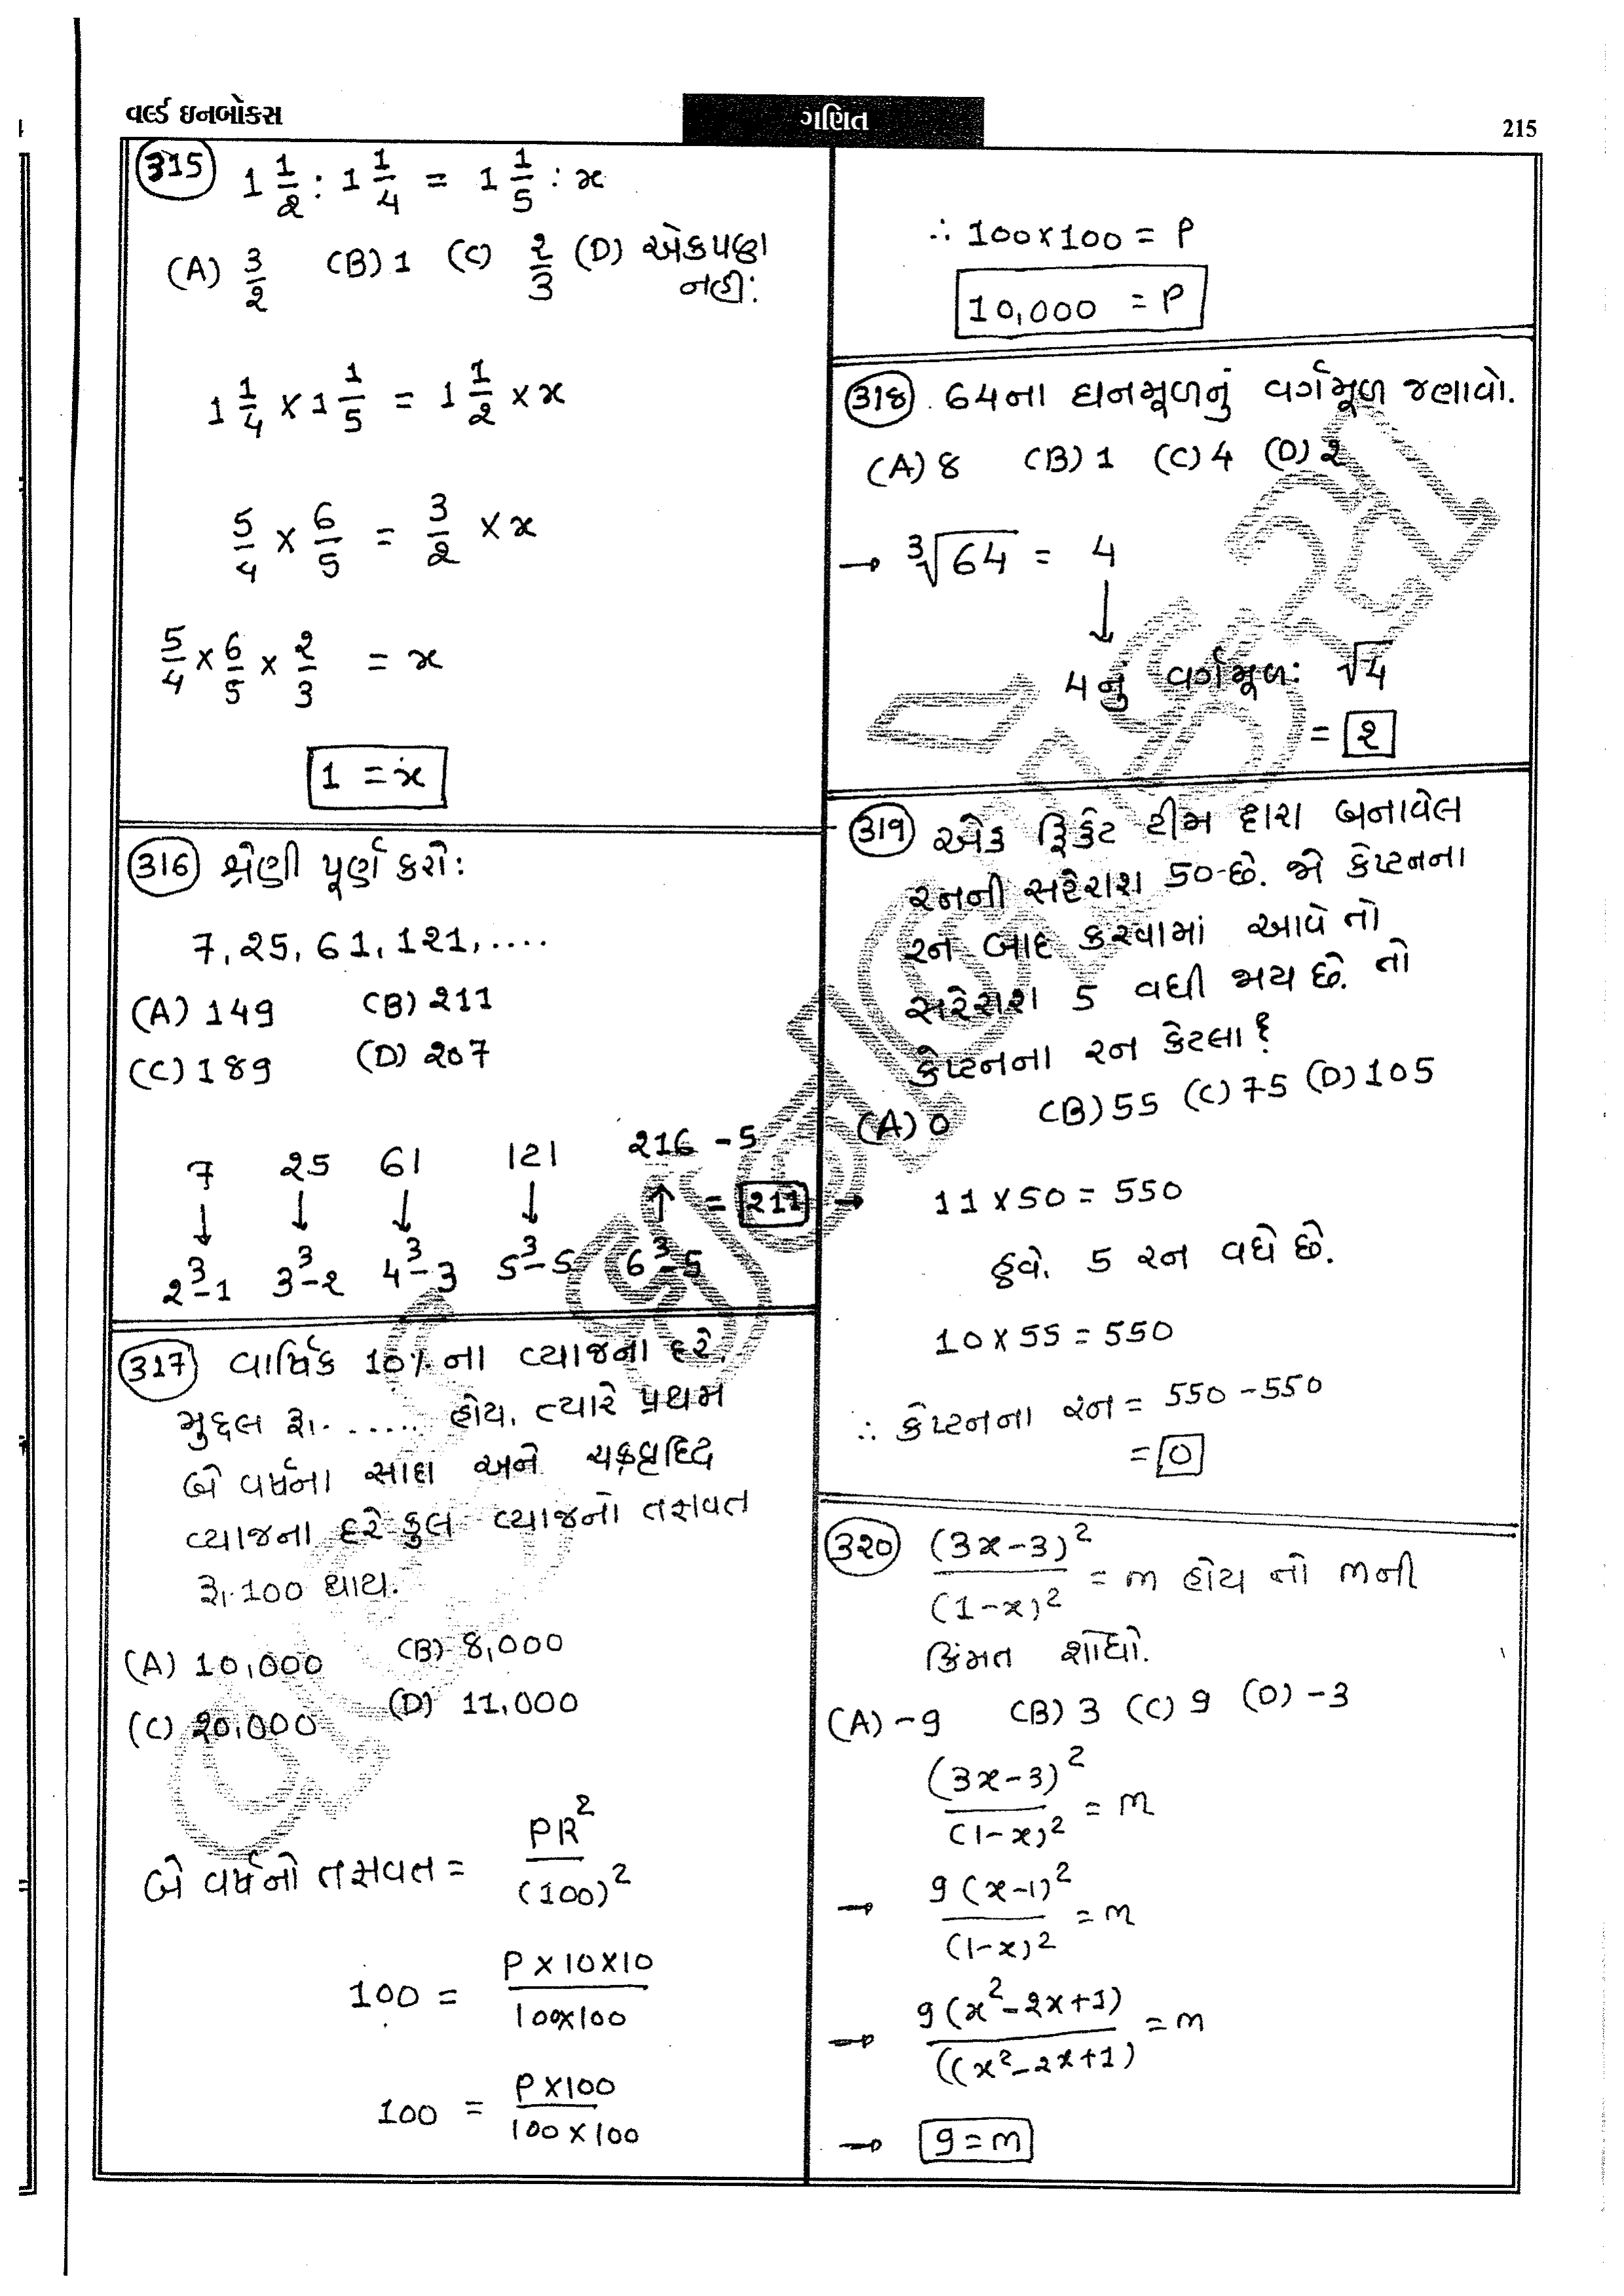 વર્લ્ડ ઇનબોક્સ
ગણિત
215
315 1 1/2 : 1 1/4 = 1 1/5 : x
(A) 3/2 (B) 1 (C) 2/3 (D) એકપણ નહીં:
1 1/4 × 1 1/5 = 1 1/2 × x
5/4 × 6/5 = 3/2 × x
5/4 × 6/5 × 2/3 = x
1 = x
316 શ્રેણી પૂર્ણ કરો:
7, 25, 61, 121, ....
(A) 149 (B) 211
(C) 189 (D) 207
7 25 61 121 216 - 5
↓ ↓ ↓ ↓ ↑ = 211
2³-1 3³-2 4³-3 5³-5 6³-5
317 વાર્ષિક 10% ના વ્યાજના દરે,
મુદ્દલ રૂા. ...... હોય, ત્યારે પ્રથમ
બે વર્ષના સાદા અને ચક્રવૃદ્ધિ
વ્યાજના દરે કુલ વ્યાજનો તફાવત
રૂા. 100 થાય.
(A) 10,000 (B) 8,000
(C) 20,000 (D) 11,000
બે વર્ષનો તફાવત = PR²/(100)²
100 = P×10×10/100×100
100 = P×100/100×100
∴ 100×100 = P
10,000 = P
318 . 64ના ઘનમૂળનું વર્ગમૂળ જણાવો.
(A) 8 (B) 1 (C) 4 (D) 2
→ ³√64 = 4
↓
4નું વર્ગમૂળ: √4
= 2
319 એક ક્રિકેટ ટીમ દ્વારા બનાવેલ
રનની સરેરાશ 50 છે. જો કેપ્ટનના
રન બાદ કરવામાં આવે તો
સરેરાશ 5 વધી જાય છે. તો
કેપ્ટનના રન કેટલા?
(A) 0 (B) 55 (C) 75 (D) 105
→ 11 × 50 = 550
હવે, 5 રન વધે છે.
10 × 55 = 550
∴ કેપ્ટનના રન = 550 - 550
= 0
320 (3x-3)²/(1-x)² = m હોય તો mની
કિંમત શોધો.
(A) -9 (B) 3 (C) 9 (D) -3
(3x-3)²/(1-x)² = m
→ 9(x-1)²/(1-x)² = m
→ 9(x²-2x+1)/((x²-2x+1) = m
→ 9 = m